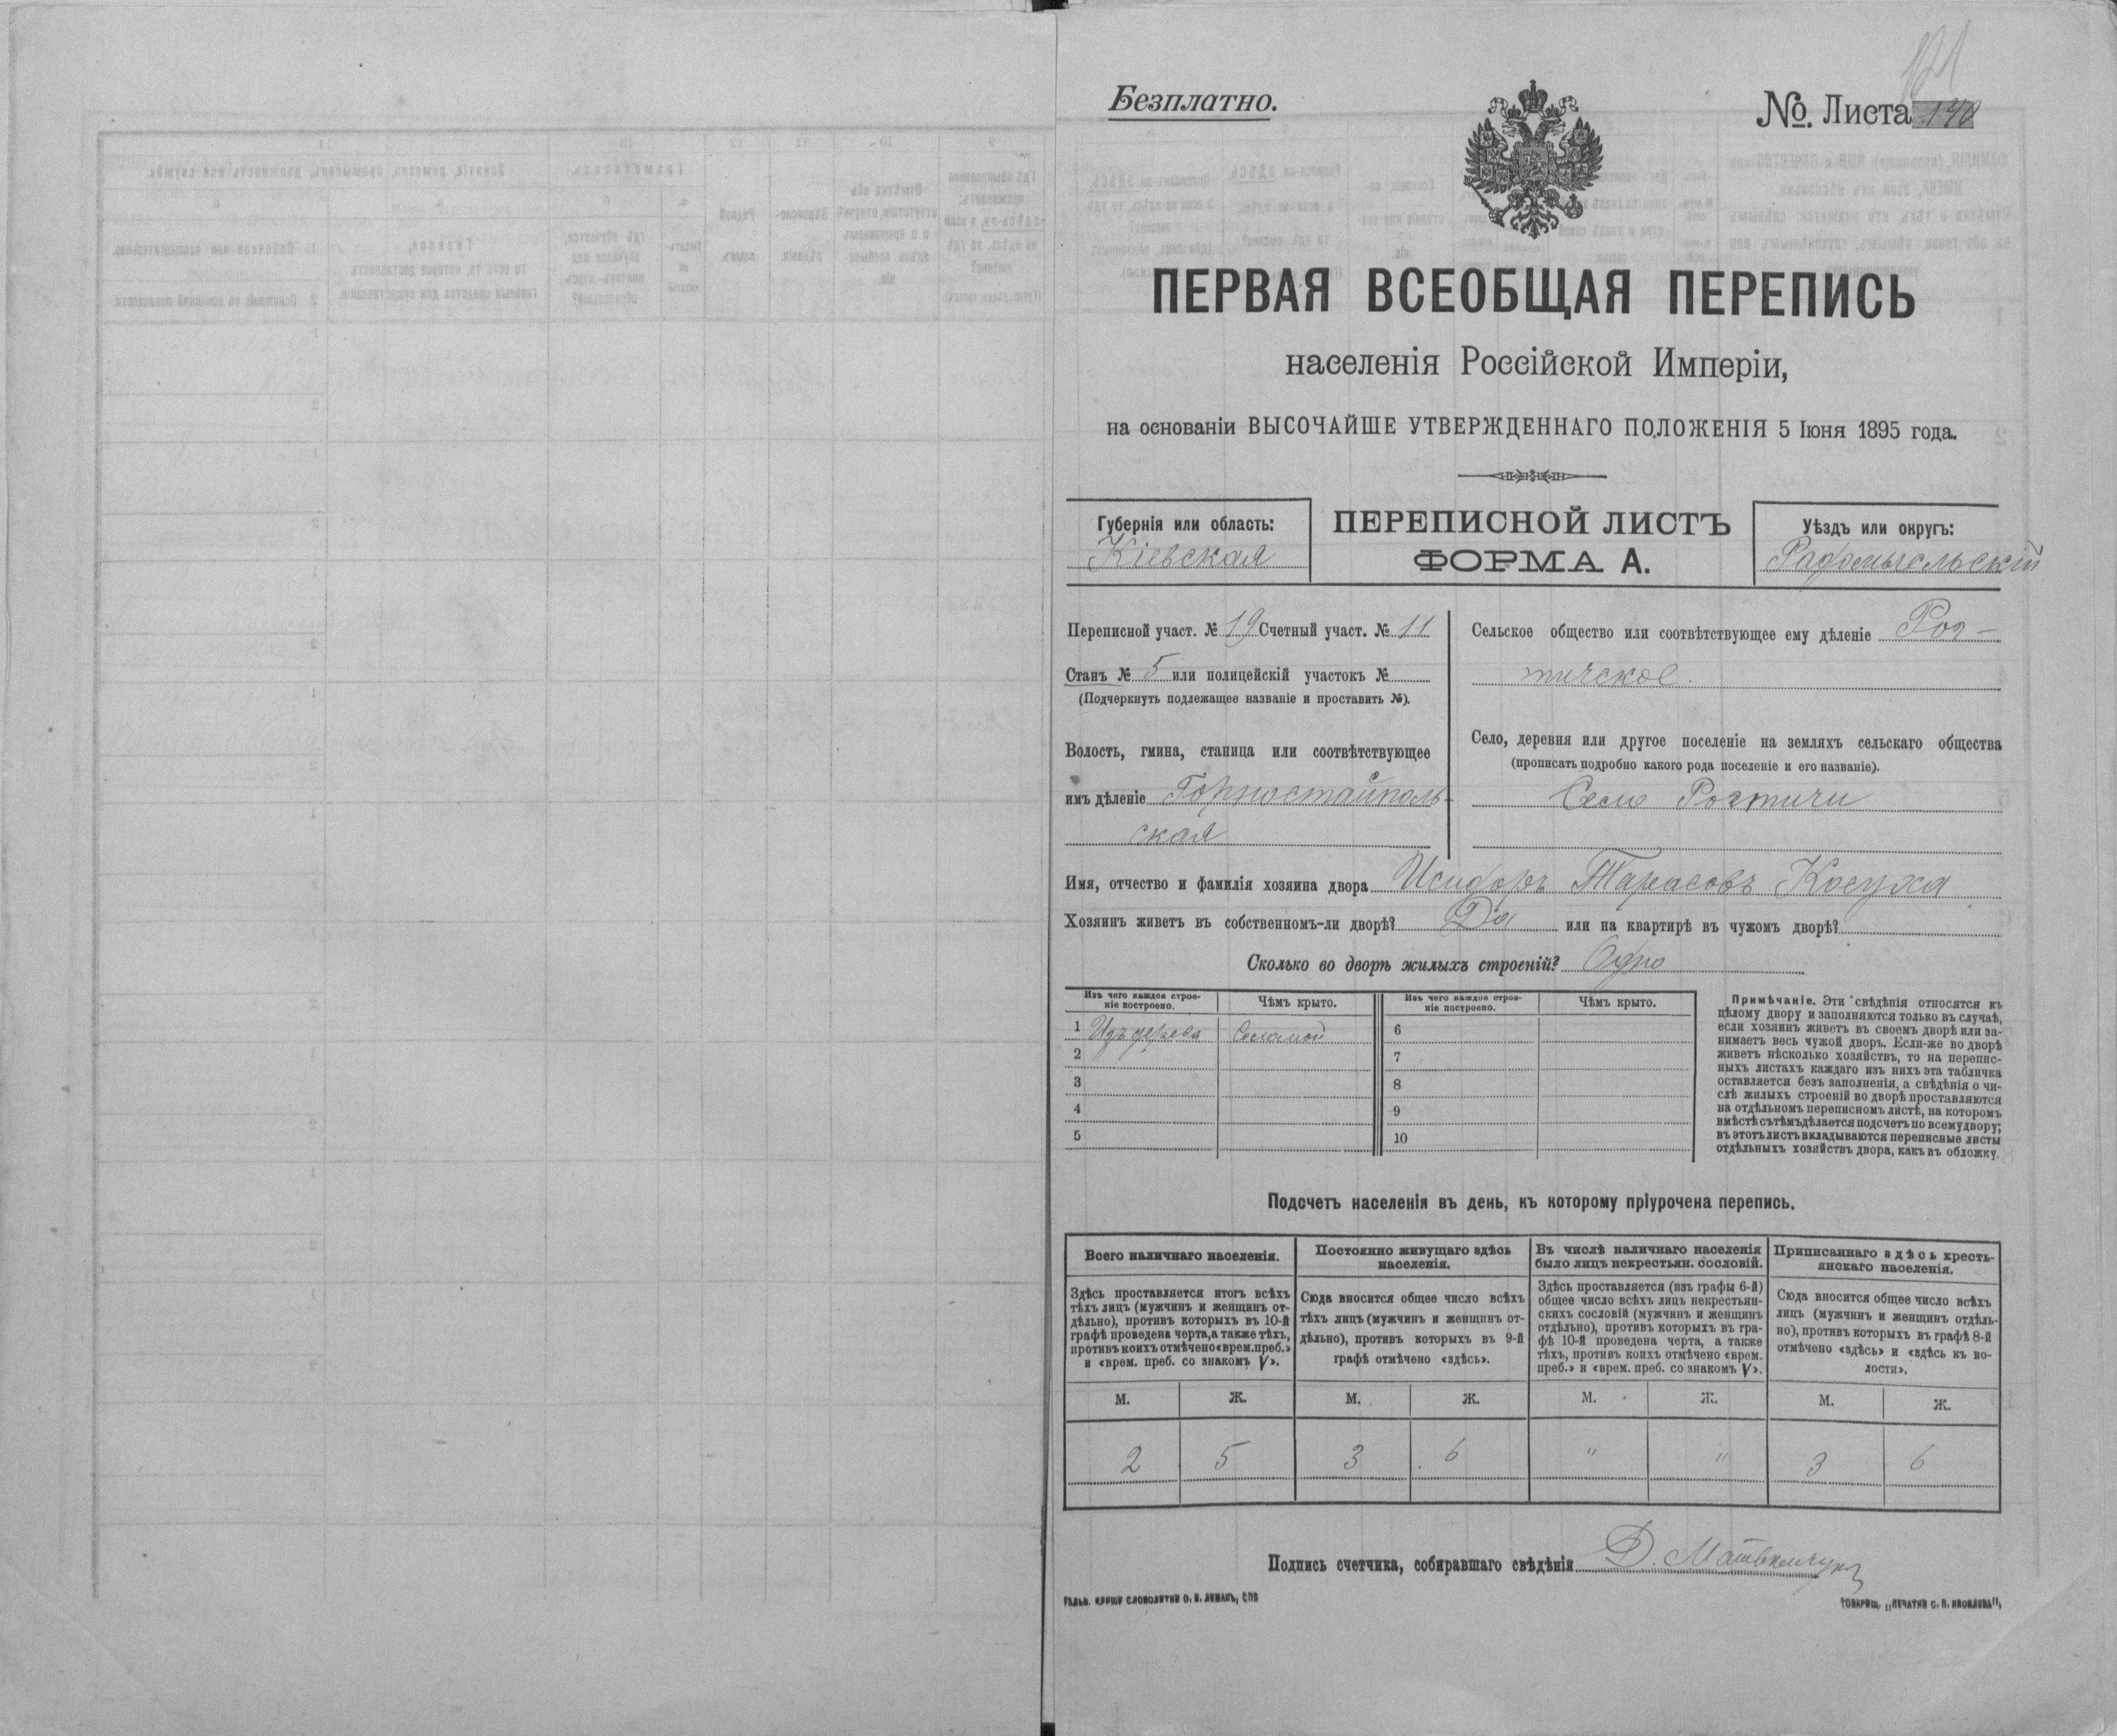 Безплатно.
№. Листа 140
121
ПЕРВАЯ ВСЕОБЩАЯ ПЕРЕПИСЬ
населенія Россійской Имперіи,
на основаніи ВЫСОЧАЙШЕ УТВЕРЖДЕННАГО ПОЛОЖЕНІЯ 5 Іюня 1895 года.
Губернія или область:
Кіевская
ПЕРЕПИСНОЙ ЛИСТЪ
ФОРМА А.
Уѣздъ или округъ:
Радомысльскій
Переписной участ. № 19 Счетный участ. № 11
Станъ № 5 или полицейскій участокъ №
(Подчеркнуть подлежащее названіе и проставить №).
Волость, гмина, станица или соотвѣтствующее
имъ дѣленіе Горностайполь-
ская
Сельское общество или соотвѣтствующее ему дѣленіе Рот-
тичское.
Село, деревня или другое поселеніе на земляхъ сельскаго общества
(прописать подробно какого рода поселеніе и его названіе).
Село Роттичи
Имя, отчество и фамилія хозяина двора Исидоръ Тарасовъ Косуха
Хозяинъ живетъ въ собственномъ-ли дворѣ? Да или на квартирѣ въ чужомъ дворѣ?
Сколько во дворѣ жилыхъ строеній? Одно
Изъ чего каждое строе-
ніе построено.
Чѣмъ крыто.
Изъ чего каждое строе-
ніе построено.
Чѣмъ крыто.
1 Изъ дерева Соломой 6
2 7
3 8
4 9
5 10
Примѣчаніе. Эти свѣдѣнія относятся къ
цѣлому двору и заполняются только въ случаѣ,
если хозяинъ живетъ въ своемъ дворѣ или за-
нимаетъ весь чужой дворъ. Если-же во дворѣ
живетъ нѣсколько хозяйствъ, то на перепис-
ныхъ листахъ каждаго изъ нихъ эта табличка
оставляется безъ заполненія, а свѣдѣнія о чи-
слѣ жилыхъ строеній во дворѣ проставляются
на отдѣльномъ переписномъ листѣ, на которомъ
вмѣстѣ съ тѣмъ дѣлается подсчетъ по всему двору;
въ этотъ листъ вкладываются переписные листы
отдѣльныхъ хозяйствъ двора, какъ въ обложку.
Подсчетъ населенія въ день, къ которому пріурочена перепись.
Всего наличнаго населенія.
Здѣсь проставляется итогъ всѣхъ
тѣхъ лицъ (мужчинъ и женщинъ от-
дѣльно), противъ которыхъ въ 10-й
графѣ проведена черта, а также тѣхъ,
противъ коихъ отмѣчено «врем. преб.»
и «врем. преб. со знакомъ V».
Постоянно живущаго здѣсь
населенія.
Сюда вносится общее число всѣхъ
тѣхъ лицъ (мужчинъ и женщинъ от-
дѣльно), противъ которыхъ въ 9-й
графѣ отмѣчено «здѣсь».
Въ числѣ наличнаго населенія
было лицъ некрестьян. сословій.
Здѣсь проставляется (изъ графы 6-й)
общее число всѣхъ лицъ некрестьян-
скихъ сословій (мужчинъ и женщинъ
отдѣльно), противъ которыхъ въ гра-
фѣ 10-й проведена черта, а также
тѣхъ, противъ коихъ отмѣчено «врем.
преб.» и «врем. преб. со знакомъ V».
Приписаннаго здѣсь кресть-
янскаго населенія.
Сюда вносится общее число всѣхъ
лицъ (мужчинъ и женщинъ отдѣль-
но), противъ которыхъ въ графѣ 8-й
отмѣчено «здѣсь» и «здѣсь къ во-
лости».
М. Ж. М. Ж. М. Ж. М. Ж.
2 5 3 6 " " 3 6
Подпись счетчика, собиравшаго свѣдѣнія Д. Матвѣйчукъ
ГАЛЬВ. КЛИШЕ СЛОВОЛИТНИ О. И. ЛЕМАНЪ, СПБ
ТОВАРИЩ. „ПЕЧАТНЯ С. П. ЯКОВЛЕВА",